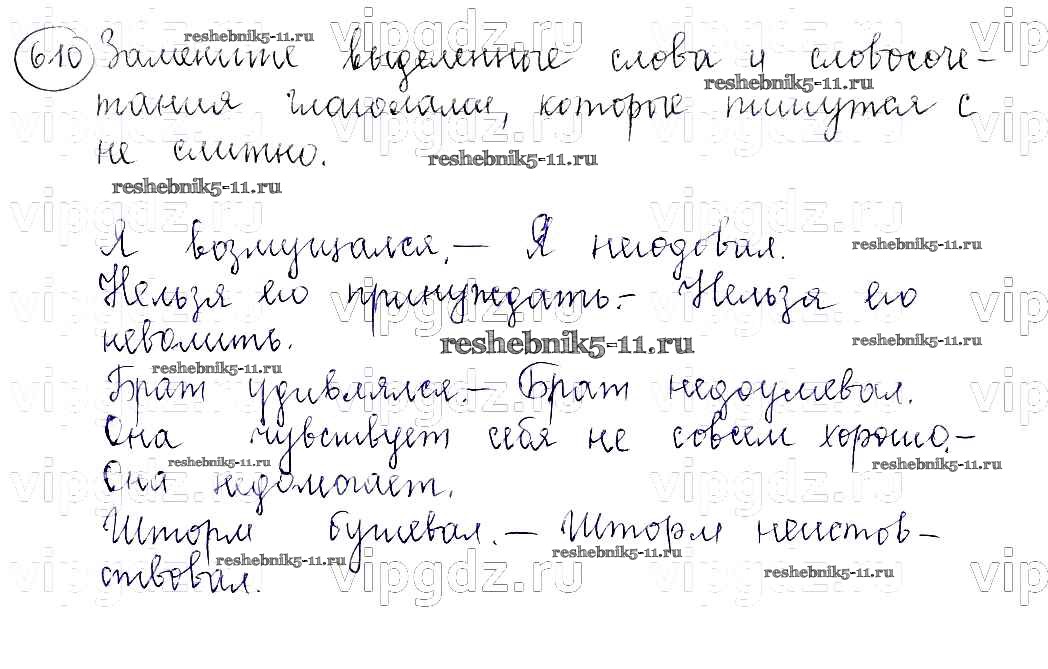 610 Замените выделенные слова и словосоче-
тания глаголами, которые пишутся с
не слитно.
Я возмущался. — Я негодовал.
Нельзя его принуждать. — Нельзя его
неволить.
Брат удивлялся. — Брат недоумевал.
Она чувствует себя не совсем хорошо. —
Она недомогает.
Шторм бушевал. — Шторм неистов-
ствовал.
reshebnik5-11.ru
vipgdz.ru